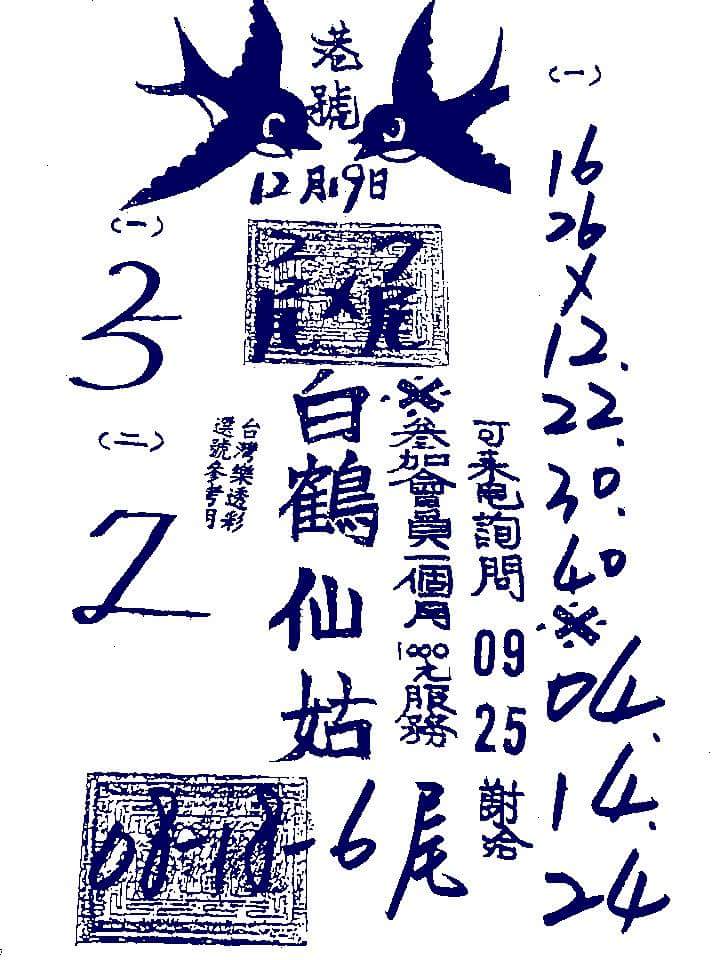 港號
12月19日
(一)
16
26
×
12.
22.
30.
40
※
04.
14.
24
可来电詢問 09 25 謝洽
※參加會員一個月1000元服務
尾×尾
白鶴仙姑
台灣樂透彩
選號參考用
(一)
(二)
2
08-18-6尾